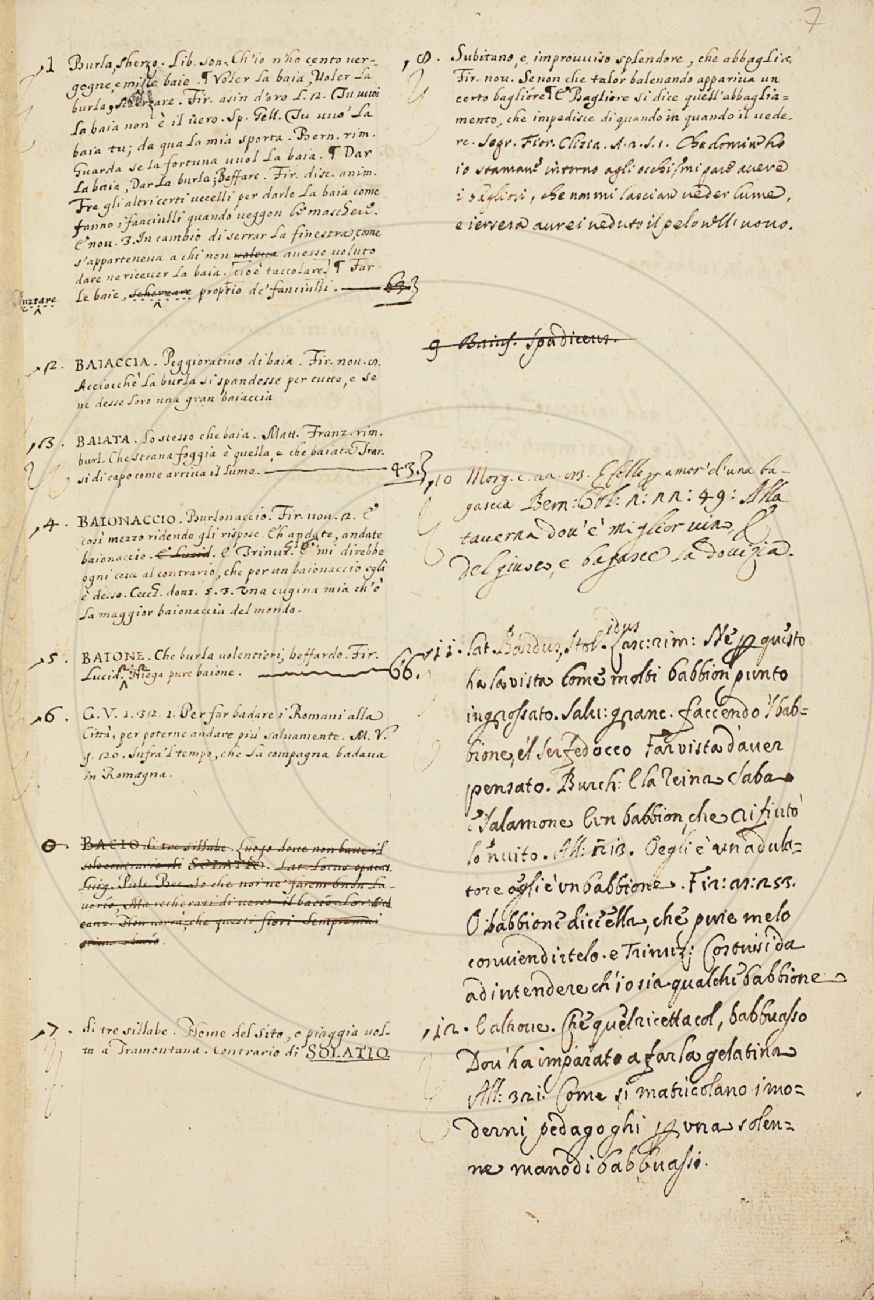 7
1 Burla, scherzo. Lib. son. Ch'io n'ho cento ver-
gogne, e mille baie. ¶ Voler la baia, Voler la
burla, scherzare. Fir. asin d'oro L. 12. Tu vuoi
la baia non è il vero. Sp. Gell. Tu vuo' la
baia tu; da qua la mia sporta. Bern. rim.
Guarda se la fortuna vuol la baia. ¶ Dar
la baia, Dar la burla, Beffare. Fir. disc. anim.
Fra gli altri certi uccelli per darle la baia come
fanno i fanciulli quando veggon le maschere.
E nov. 3. In cambio di serrar la finestra, come
s'apparteneva a chi non avesse voluto
dare ne ricever la baia. cioè taccolare. ¶ Far
le baie, scherzare proprio de' fanciulli. 63.
2. BAIACCIA. Peggiorativo di baia. Fir. nov.
Acciocchè la burla si spandesse per tutto, e se
ne desse loro una gran baiaccia
3. BAIATA. Lo stesso che baia. Matt. Franz. rim.
burl. Che strana foggia è quella, e che baiata Trar-
si di capo come arriva il lume. 43.
4. BAIONACCIO. Burlonaccio. Fir. nov. 2. E
così mezzo ridendo gli rispose. Eh andate, andate
baionaccio. E Lucid. E Trinuz. E' mi direbbe
ogni cosa al contrario, che por un baionaccio egli
è desso. Cecch. donz. 5. 3. Una cugina mia ch'è
la maggior baionaccia del mondo.
5. BAIONE. Che burla volentieri, beffardo. Fir.
Lucid. Niega pure baione. 66.
6. G. V. 1. 32. 1. Per far badare i Romani alla
Città, per poterne andare più salvamente. M. V.
9. 20. Infra 'l tempo, che la compagna badava
in Romagna.
BACIO di tre sillabe. Luogo dove non batte il
sole contrario di SOLATIO. Lat. Locus opacus
7. di tre sillabe. Nome del sito, o piaggia vol-
ta a Tramontana. Contrario di SOLATIO
8. Subitano, e, improvviso splendore, che abbaglia.
Fir. nov. Se non che talor balenando appariva un
certo bagliore ¶ E Bagliore si dice quell'abbaglia-
mento, che impedisce di quando in quando il vede-
re. Segr. Fior. Clizia. A. 2. s. 1. Che domin ho
io stamani intorno agli occhi? mi pare avere
i bagliori, che non mi lascian veder lume,
e iersera aurei veduto il pelo nell'uovo.
9 spadiceus.
10 Morg. c. E felle per amor d'una ba-
gascia Bern: Orl: 49: Alla
taverna dov'è miglior vino, E
Del giuoco, e bagasce la dovizia.
11. Lat. Bardus, Stolidus Lasc: rim: Ne per questo
ha la vista come molti babbion punto
ingrossato. Salv: granc. faccendo 'l bab-
bione, e'l ser fedocco Far vista d'aver
pensato. Burch: E la Reina Saba
e Salamone Eron babbion, che rifiutò
lo 'nvito. All: 213. Oegli è un adula-
tore egli è un babbione. Fir: as: 253.
O babbione diss'ella, che pure me lo
conviendirtelo. e Trinuz: Costui si da
ad intendere ch'io sia qualche babbione
12. E altrove. Che quel ricettacol, babbuasso
Dov'ha imparato a far la gelatina
All: 321: Come si matricolano i mo-
derni pedagoghi per una solen-
ne mano di babbuassi.